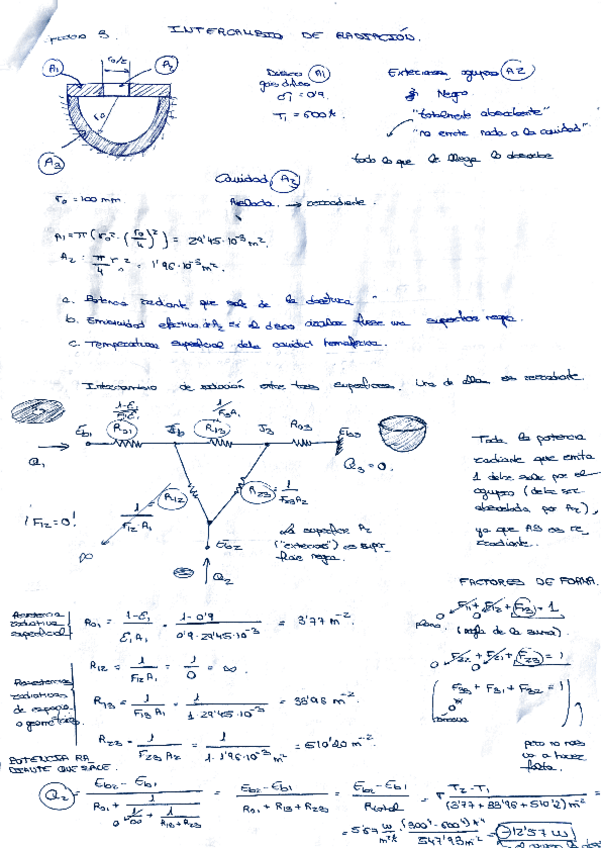 INTERCAMBIO DE RADIACIÓN.
r₀/2
A1
A2
A3
r₀
Disco A1
gris difuso
ε1 = 0'9
T1 = 600 K.
Exterior agujero A2
Negro.
"totalmente absorbente"
"no emite nada a la cavidad"
todo lo que le llega lo absorbe
Cavidad
Aislada → rerradiante.
r₀ = 100 mm
A1 = π(r₀² - (r₀/4)²) = 29'45·10⁻³ m².
A2 = π/4 r₀² = 1'96·10⁻³ m².
a. Potencia radiante que sale de la abertura
b. Emisividad efectiva de A2 si el disco fuese una superficie negra.
c. Temperatura superficial de la cavidad hemisférica.
Intercambio de radiación entre tres superficies. Una de ellas es rerradiante.
Eb1
R01
R13
1/F13A1
J3
R03
Eb3
Q1
Q3 = 0.
R12
1/F12 A1
R23 = 1/F23 A2
¡F12 = 0!
∞
Eb2
Q2
La superficie A2
("exterior") es super
ficie negra.
Toda la potencia
radiante que emita
1 debe salir por el
agujero (debe ser
absorbida por A2),
ya que A3 es re
rradiante.
FACTORES DE FORMA.
F11 + F12 + F13 = 1
plano. (regla de la suma).
F22 + F21 + F23 = 1
(F33 + F31 + F32 = 1)
pero no nos
va a hacer
falta.
Resistencia
radiativa
superficial
R01 = 1-ε1 / ε1 A1 = 1-0'9 / 0'9·29'45·10⁻³ = 3'77 m⁻².
Resistencias
radiativas
de espacio
o geométricas.
R12 = 1/F12 A1 = 1/0 = ∞.
R13 = 1/F13 A1 = 1/1·29'45·10⁻³ = 33'96 m⁻².
R23 = 1/F23 A2 = 1/1·1'96·10⁻³ m² = 510'20 m⁻².
POTENCIA RA
DIANTE QUE SALE.
Q2 = Eb2 - Eb1 / R01 + 1/(1/∞ + 1/R13+R23) = Eb2 - Eb1 / R01 + R13 + R23 = Eb2 - Eb1 / Rtotal = σ T2 - T1 / (3'77 + 33'96 + 510'2) m⁻² =
= 5'67 W/m²K⁴ · (300⁴ - 600⁴) K⁴ / 547'93 m⁻² = -12'57 W